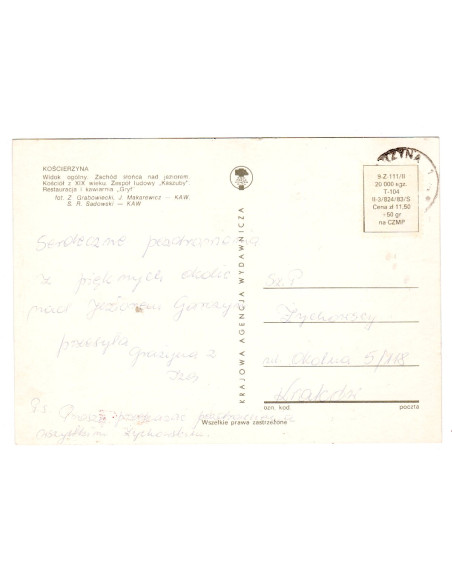 KOŚCIERZYNA
Widok ogólny. Zachód słońca nad jeziorem.
Kościół z XIX wieku. Zespół ludowy „Kaszuby”.
Restauracja i kawiarnia „Gryf”
fot. Z. Grabowiecki, J. Makarewicz — KAW,
S. R. Sadowski — KAW
Serdeczne pozdrowienia
z pięknych okolic
nad Jeziorem Garczyn
przesyła
Grażyna z
P.s. Proszę przekazać pozdrowienia
wszystkim Żychońskim.
KRAJOWA AGENCJA WYDAWNICZA
RZYNA
9 Z-111/II
20 000 egz.
T-104
II-3/824/83/S
Cena zł 11,50
+50 gr
na CZMP
Sz. P.
Żychońscy
ul. Okólna 5/118
ozn. kod
poczta
Wszelkie prawa zastrzeżone